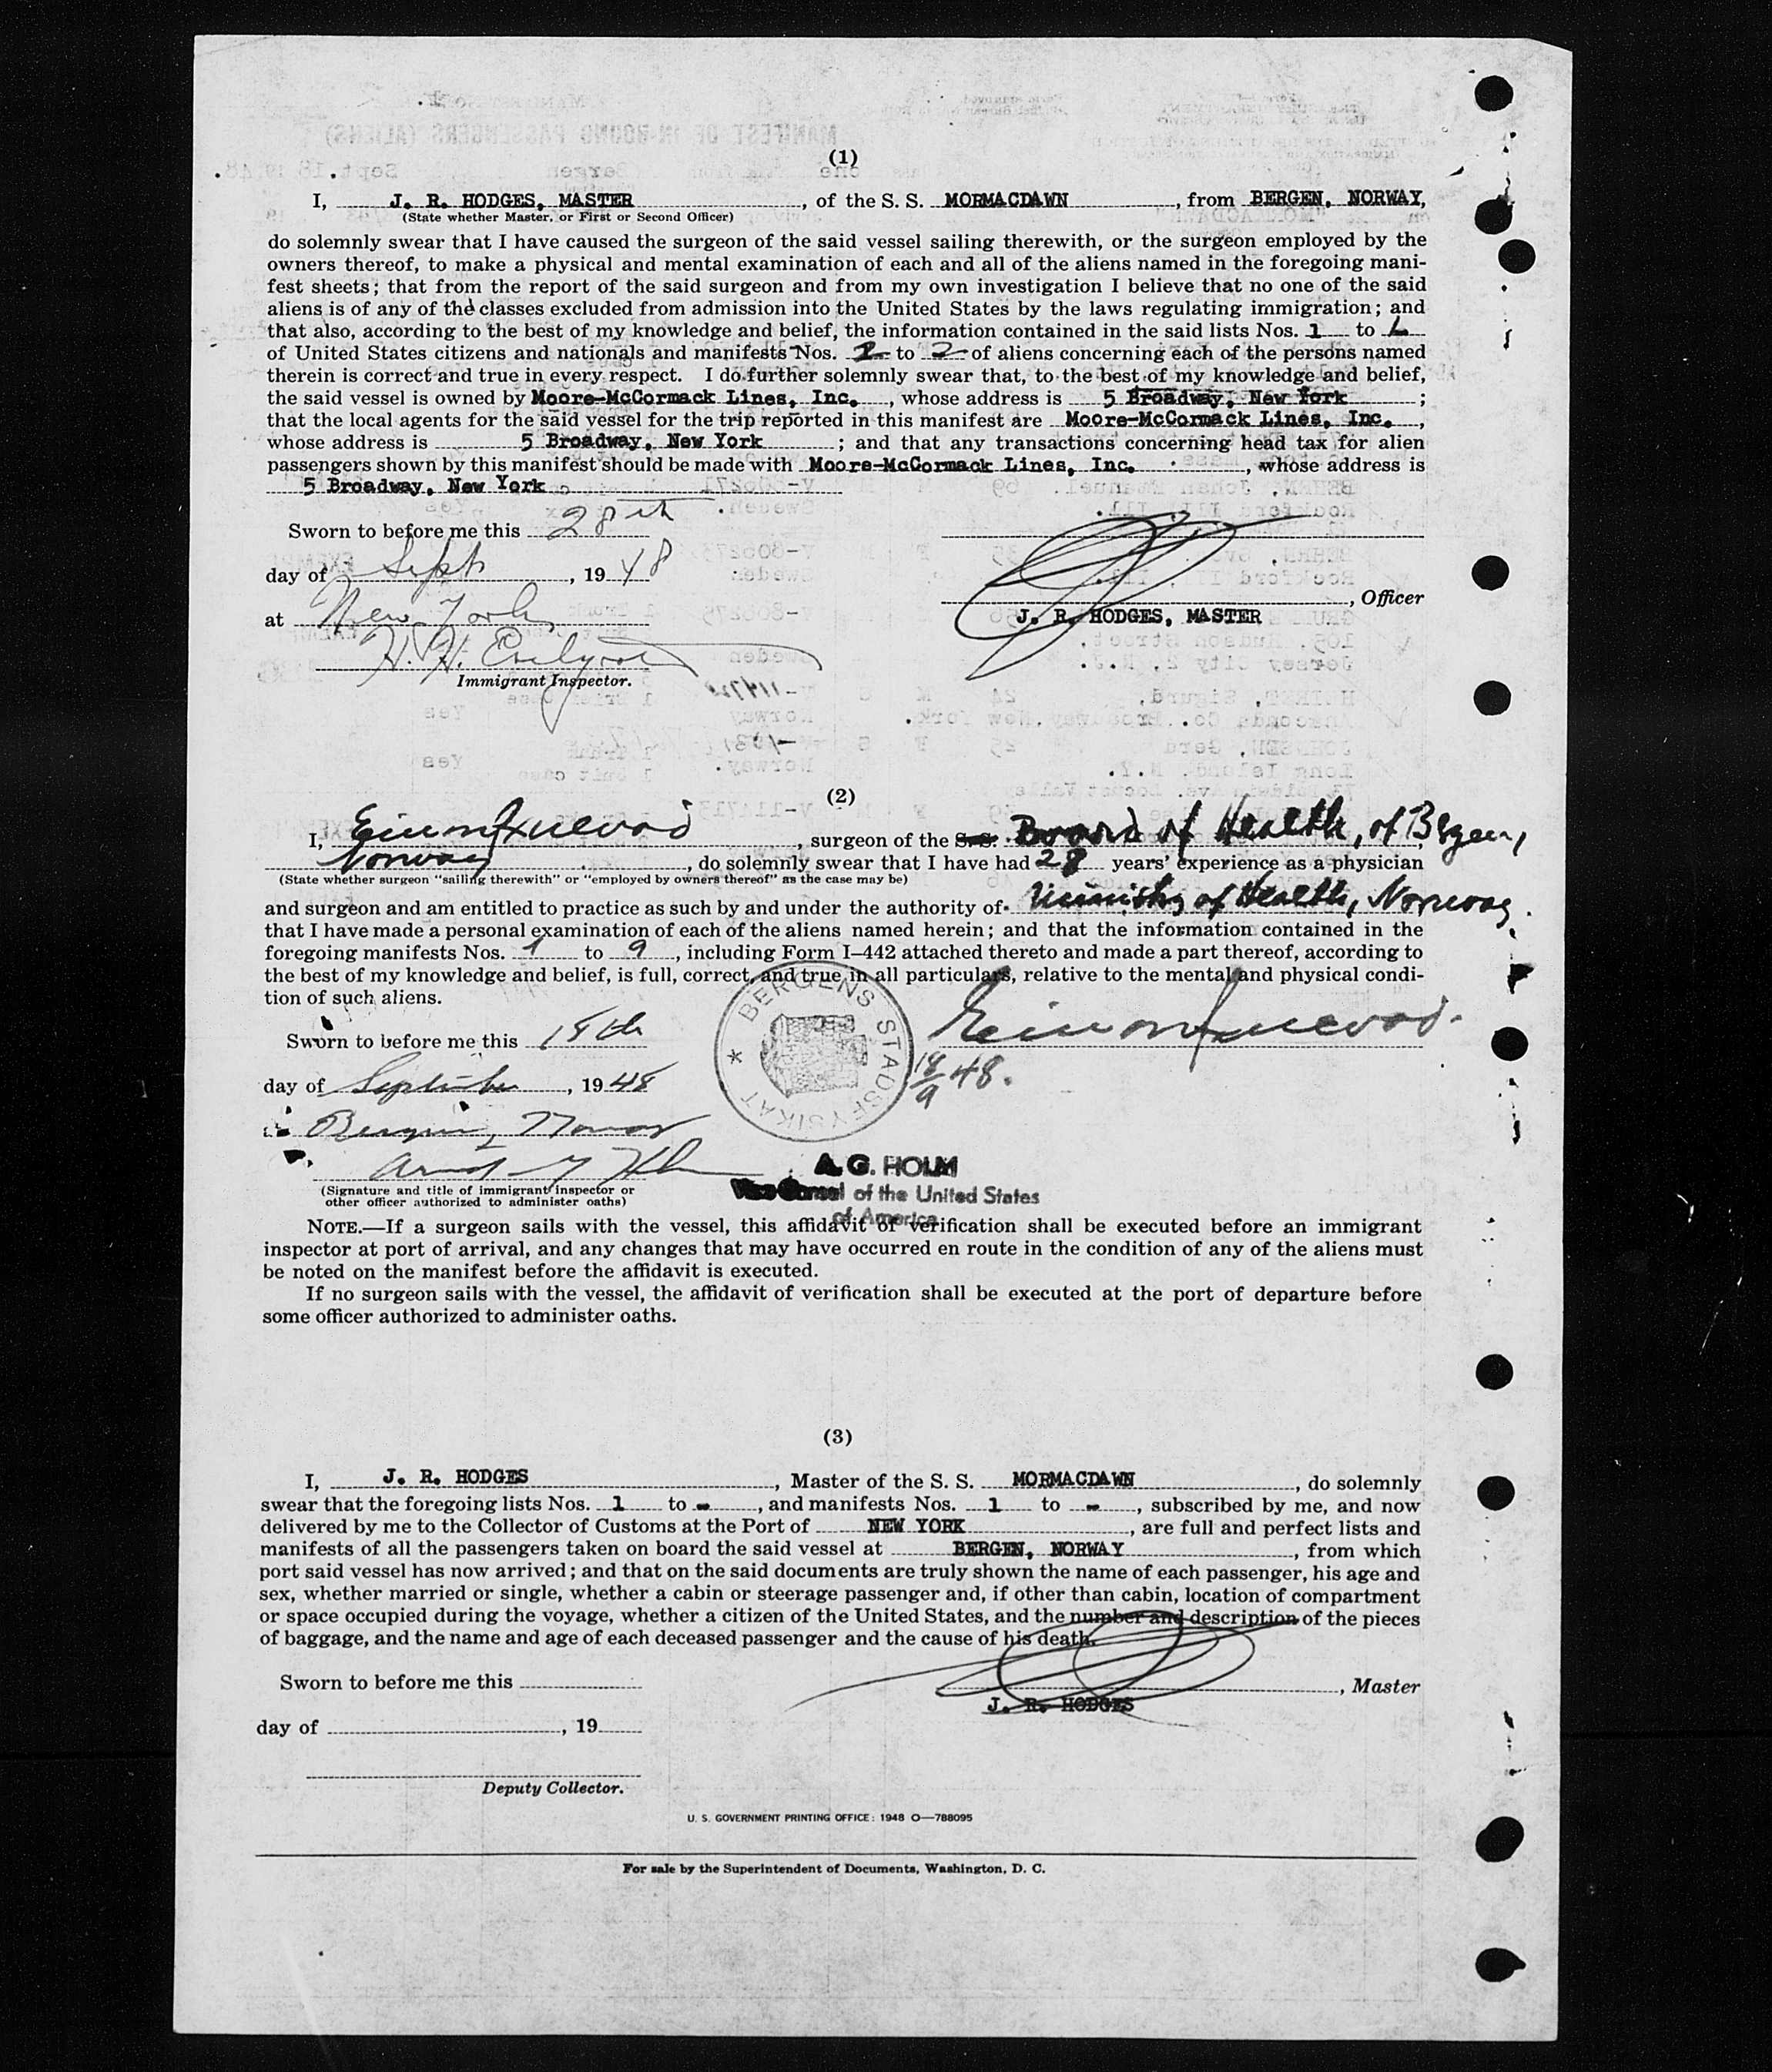 (1)
I, J. R. HODGES, MASTER, of the S. S. MORMACDAWN, from BERGEN, NORWAY,
(State whether Master, or First or Second Officer)
do solemnly swear that I have caused the surgeon of the said vessel sailing therewith, or the surgeon employed by the
owners thereof, to make a physical and mental examination of each and all of the aliens named in the foregoing mani-
fest sheets; that from the report of the said surgeon and from my own investigation I believe that no one of the said
aliens is of any of the classes excluded from admission into the United States by the laws regulating immigration; and
that also, according to the best of my knowledge and belief, the information contained in the said lists Nos. 1 to
of United States citizens and nationals and manifests Nos. to 2 of aliens concerning each of the persons named
therein is correct and true in every respect. I do further solemnly swear that, to the best of my knowledge and belief,
the said vessel is owned by Moore-McCormack Lines, Inc., whose address is 5 Broadway, New York;
that the local agents for the said vessel for the trip reported in this manifest are Moore-McCormack Lines, Inc.,
whose address is 5 Broadway, New York; and that any transactions concerning head tax for alien
passengers shown by this manifest should be made with Moore-McCormack Lines, Inc., whose address is
5 Broadway, New York
Sworn to before me this 28th
day of Sept, 1948
, Officer
at New York
J. R. HODGES, MASTER
H. H.
Immigrant Inspector.
(2)
I, , surgeon of the S. S. Board of Health, of Bergen,
Norway, do solemnly swear that I have had 28 years' experience as a physician
(State whether surgeon "sailing therewith" or "employed by owners thereof" as the case may be)
and surgeon and am entitled to practice as such by and under the authority of Ministry of Health, Norway.
that I have made a personal examination of each of the aliens named herein; and that the information contained in the
foregoing manifests Nos. 1 to 9, including Form I-442 attached thereto and made a part thereof, according to
the best of my knowledge and belief, is full, correct, and true in all particulars, relative to the mental and physical condi-
tion of such aliens.
BERGENS STADSFYSIKAT
Sworn to before me this 18th
18/9 48.
day of September, 1948
Bergen, Norway
A. G. HOLM
Vice Consul of the United States
of America
(Signature and title of immigrant inspector or
other officer authorized to administer oaths)
NOTE.—If a surgeon sails with the vessel, this affidavit of verification shall be executed before an immigrant
inspector at port of arrival, and any changes that may have occurred en route in the condition of any of the aliens must
be noted on the manifest before the affidavit is executed.
If no surgeon sails with the vessel, the affidavit of verification shall be executed at the port of departure before
some officer authorized to administer oaths.
(3)
I, J. R. HODGES, Master of the S. S. MORMACDAWN, do solemnly
swear that the foregoing lists Nos. 1 to -, and manifests Nos. 1 to -, subscribed by me, and now
delivered by me to the Collector of Customs at the Port of NEW YORK, are full and perfect lists and
manifests of all the passengers taken on board the said vessel at BERGEN, NORWAY, from which
port said vessel has now arrived; and that on the said documents are truly shown the name of each passenger, his age and
sex, whether married or single, whether a cabin or steerage passenger and, if other than cabin, location of compartment
or space occupied during the voyage, whether a citizen of the United States, and the number and description of the pieces
of baggage, and the name and age of each deceased passenger and the cause of his death.
Sworn to before me this
, Master
J. R. HODGES
day of , 19
Deputy Collector.
U. S. GOVERNMENT PRINTING OFFICE : 1948 O—788095
For sale by the Superintendent of Documents, Washington, D. C.